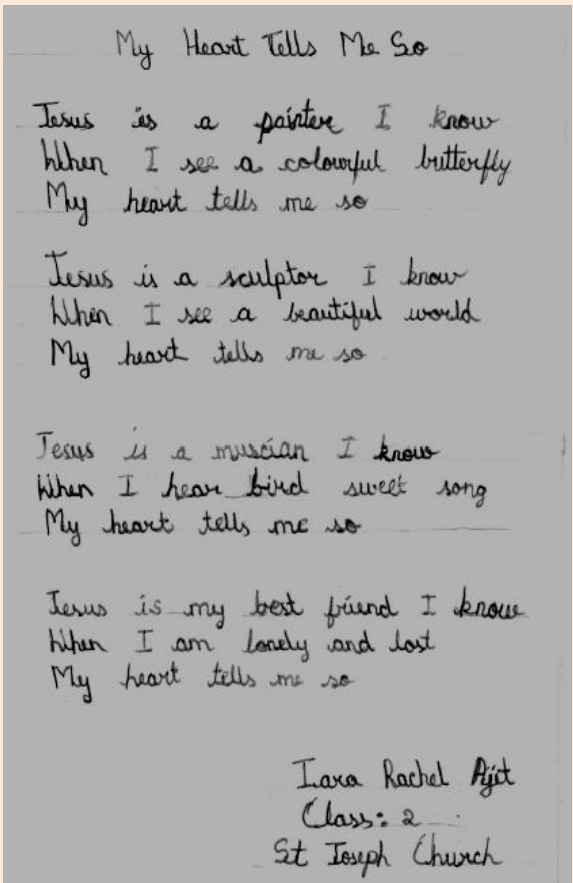 My Heart Tells Me So
Jesus is a painter I know
When I see a colourful butterfly
My heart tells me so
Jesus is a sculptor I know
When I see a beautiful world
My heart tells me so
Jesus is a muscian I know
When I hear bird sweet song
My heart tells me so
Jesus is my best friend I know
When I am lonely and lost
My heart tells me so
Iara Rachel Ajit
Class: 2
St Joseph Church